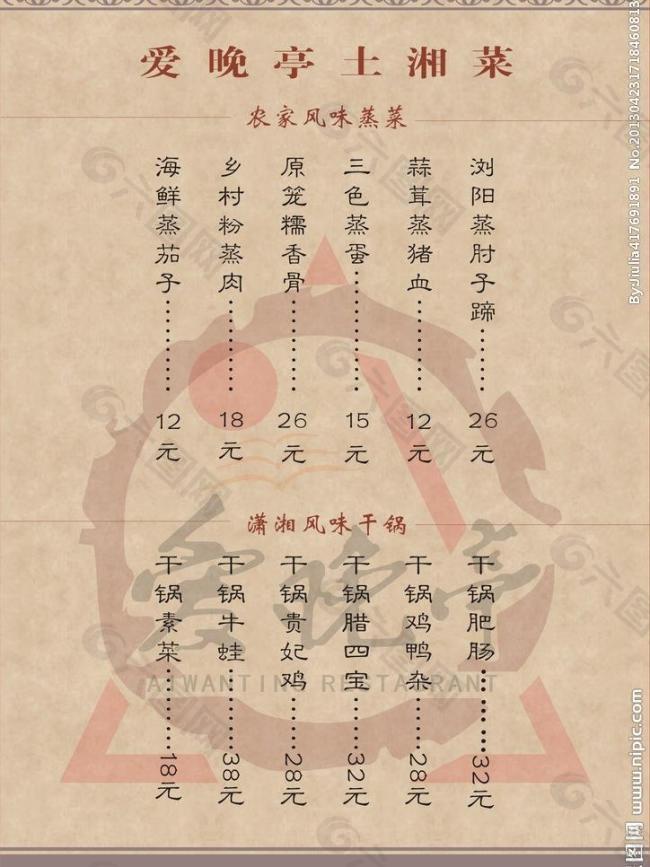 爱晚亭土湘菜
农家风味蒸菜
浏阳蒸肘子蹄………26元
蒜茸蒸猪血………12元
三色蒸蛋………15元
原笼糯香骨………26元
乡村粉蒸肉………18元
海鲜蒸茄子………12元
潇湘风味干锅
干锅肥肠………32元
干锅鸡鸭杂………28元
干锅腊四宝………32元
干锅贵妃鸡………28元
干锅牛蛙………38元
干锅素菜………18元
爱晚亭
AIWANTING RESTAURANT
By:Jiulia417691891 No.20130423171846081
www.nipic.com
六图网